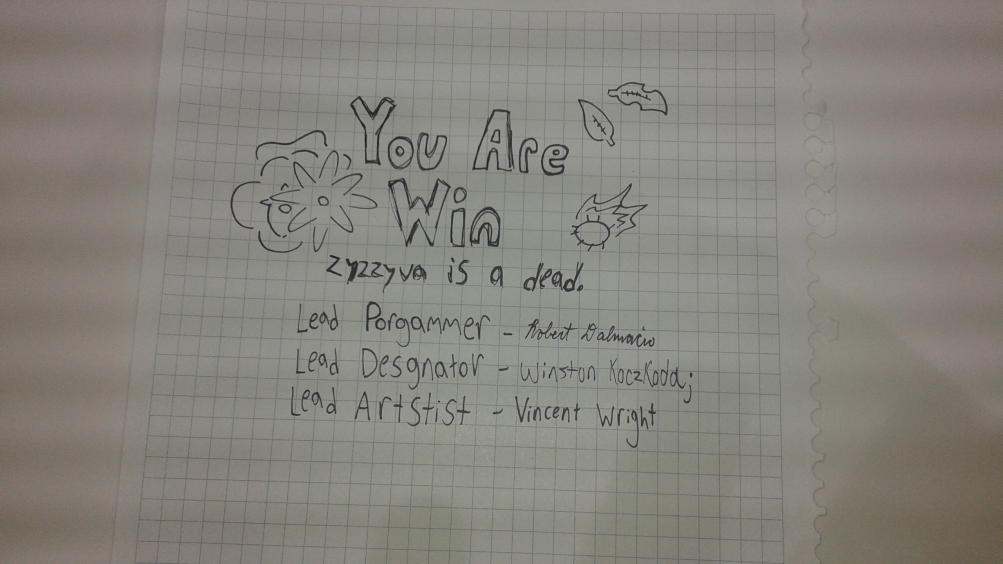 You Are
Win
zyzzyva is a dead.
Lead Porgammer - Robert Dalmacio
Lead Desgnator - Winston Koczkodaj
Lead Artstist - Vincent Wright